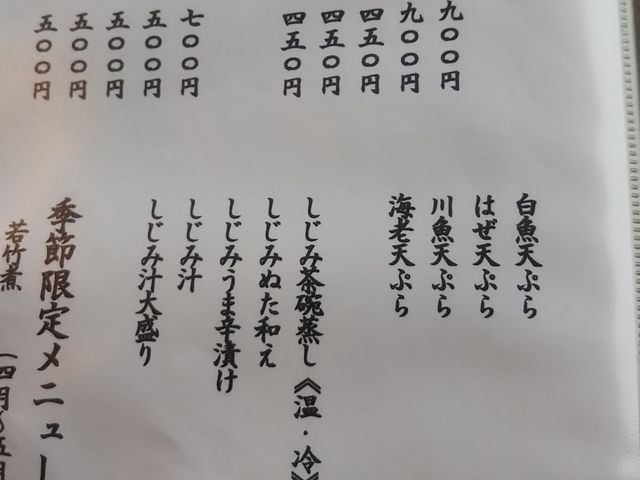 九〇〇円
九〇〇円
四五〇円
四五〇円
四五〇円
七〇〇円
五〇〇円
五〇〇円
五〇〇円
五〇〇円
白魚天ぷら
はぜ天ぷら
川魚天ぷら
海老天ぷら
しじみ茶碗蒸し《温・冷》
しじみぬた和え
しじみうま辛漬け
しじみ汁
しじみ汁大盛り
季節限定メニュー
若竹煮
(四月〜五月